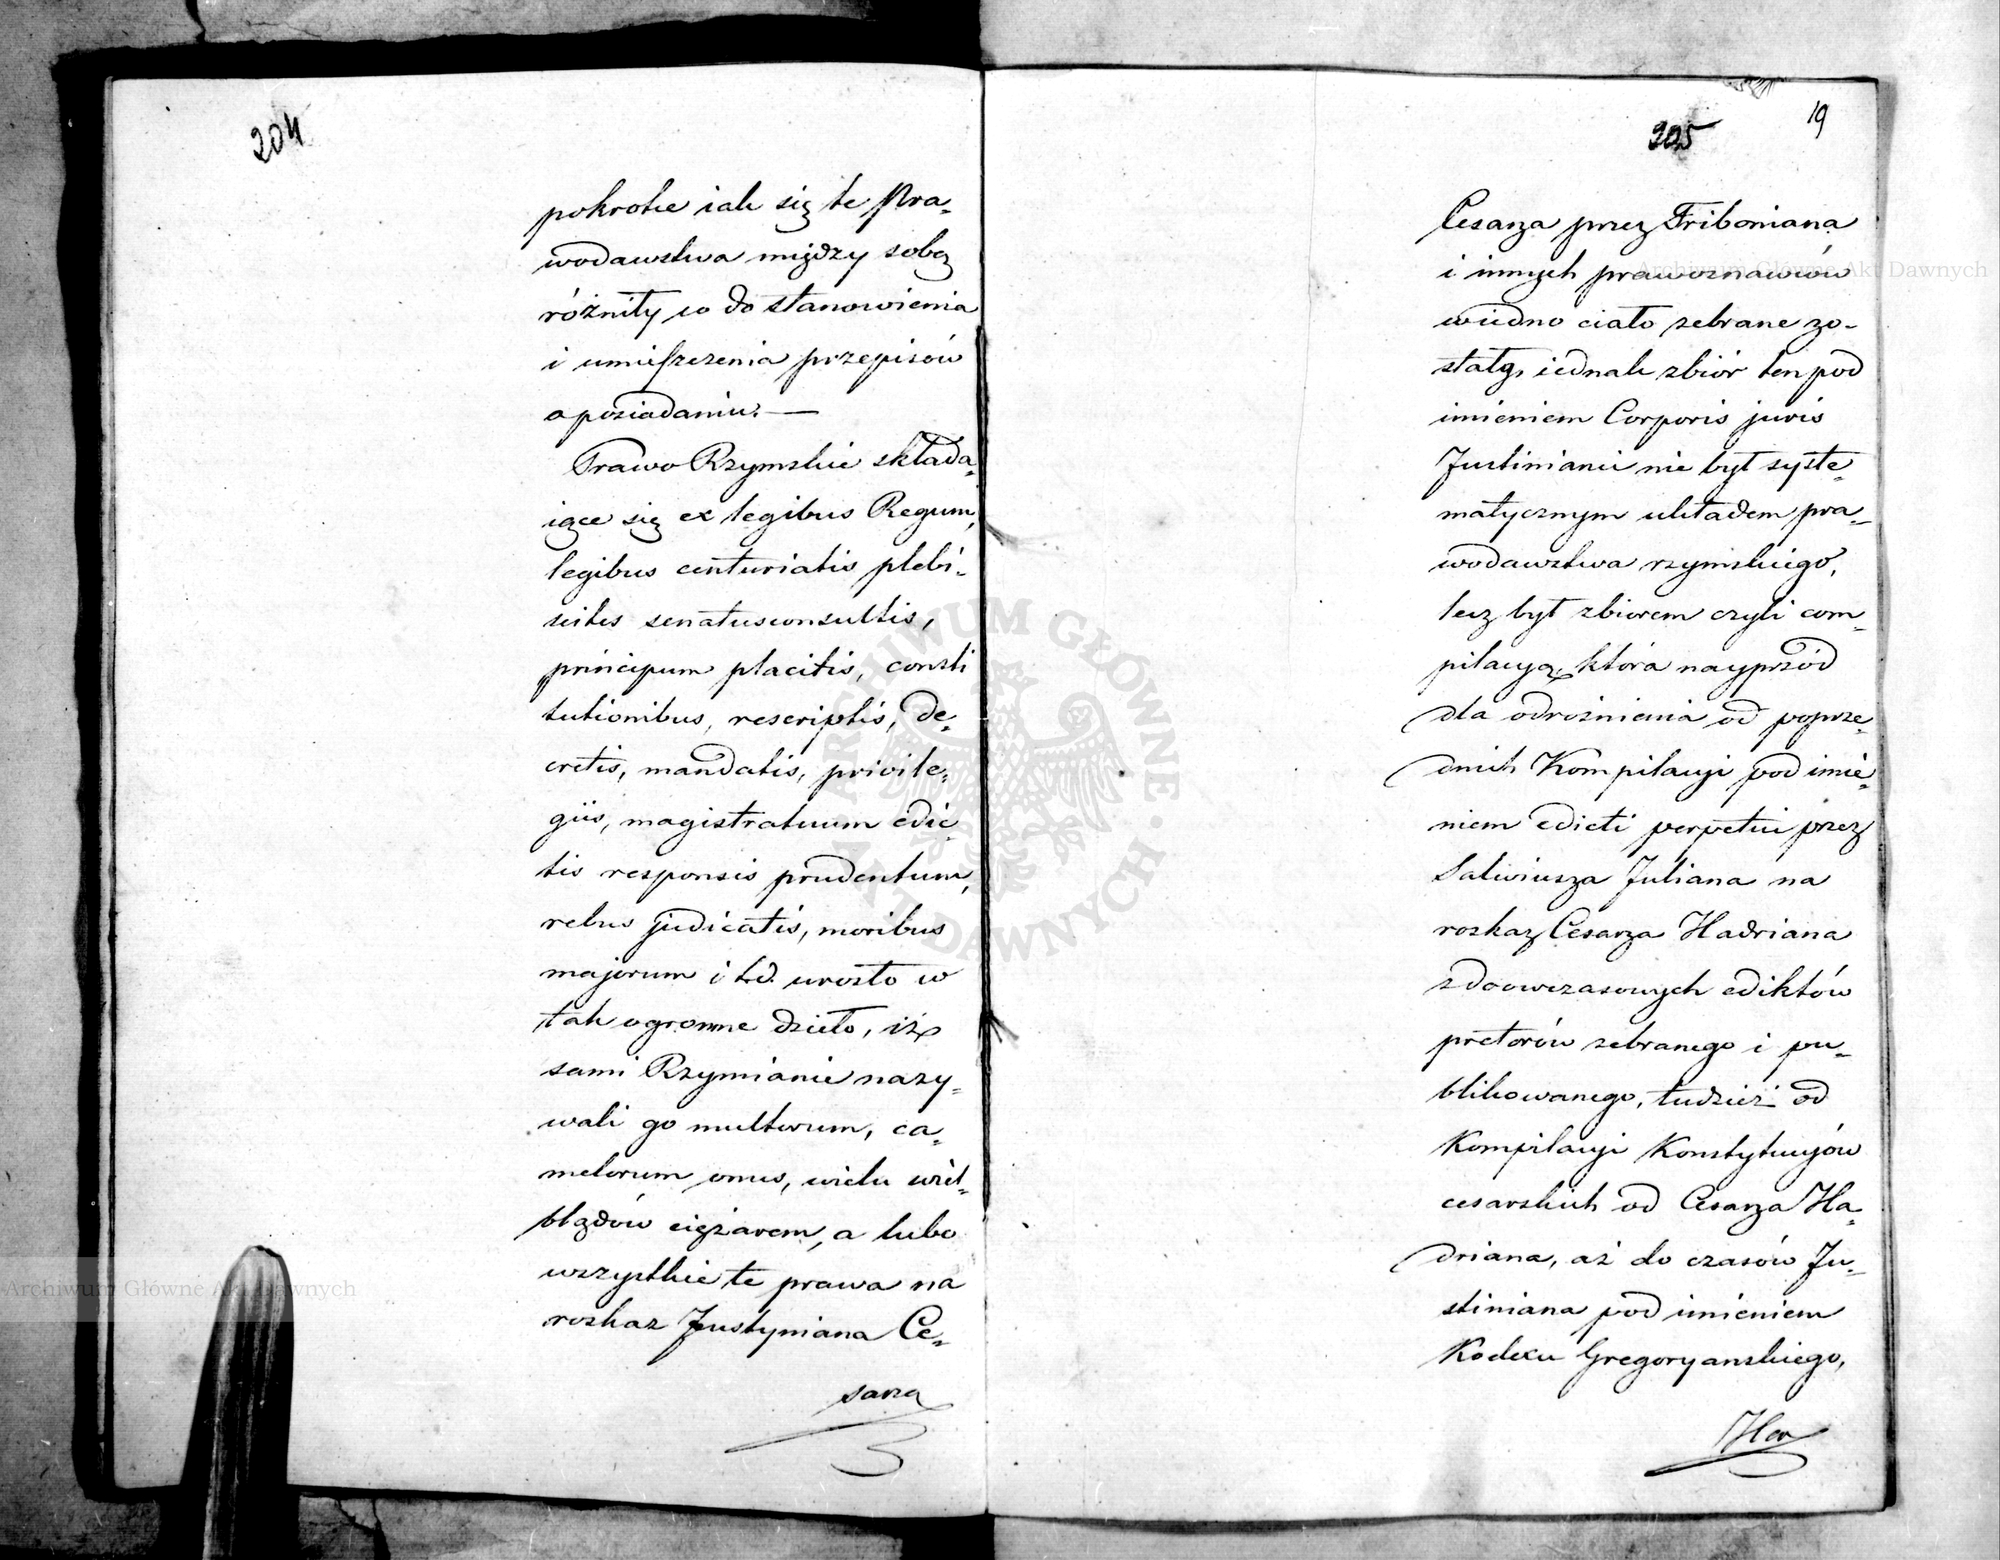 204
pokrotce iak się te Pra-
wodawstwa między sobą
różniły co do stanowienia
i umieszczenia przepisów
o posiadaniu. —
Prawo Rzymskie składa-
iące się ex legibus Regum,
legibus centuriatis plebi-
scitis senatusconsultis,
principum placitis, consti
tutionibus, rescriptis, de-
cretis, mandatis, privile-
giis, magistratuum edic-
tis responsis prudentum,
rebus judicatis, moribus
majorum i t.d. urosło w
tak ogromne dzieło, iż
sami Rzymianie nazy-
wali go multorum, ca-
melorum onus, wielu wiel-
błądów ciężarem, a lubo
wszystkie te prawa na
rozkaz Justyniana Ce-
sarza
19
205
Cesarza przez Triboniana
i innych prawoznawców
w iedno ciało zebrane zo-
stały, iednak zbiór ten pod
imieniem Corporis juris
Justinianei nie był syste-
matycznym układem pra-
wodawstwa rzymskiego,
lecz był zbiorem czyli com-
pilacyą, która nayprzód
dla odrożnienia od poprze-
dnich Kompilacyi pod imie-
niem edicti perpetui przez
Salwiusza Juliana na
rozkaz Cesarza Hadriana
z doowczasowych ediktów
pretorów zebranego i pu-
blikowanego, tudzież od
Kompilacyi Konstytucyów
cesarskich od Cesarza Ha-
driana, aż do czasów Ju-
stiniana pod imieniem
Kodexu Gregoryanskiego,
Her
Archiwum Główne Akt Dawnych
Archiwum Główne Akt Dawnych
ARCHIWUM GŁÓWNE · AKT DAWNYCH ·